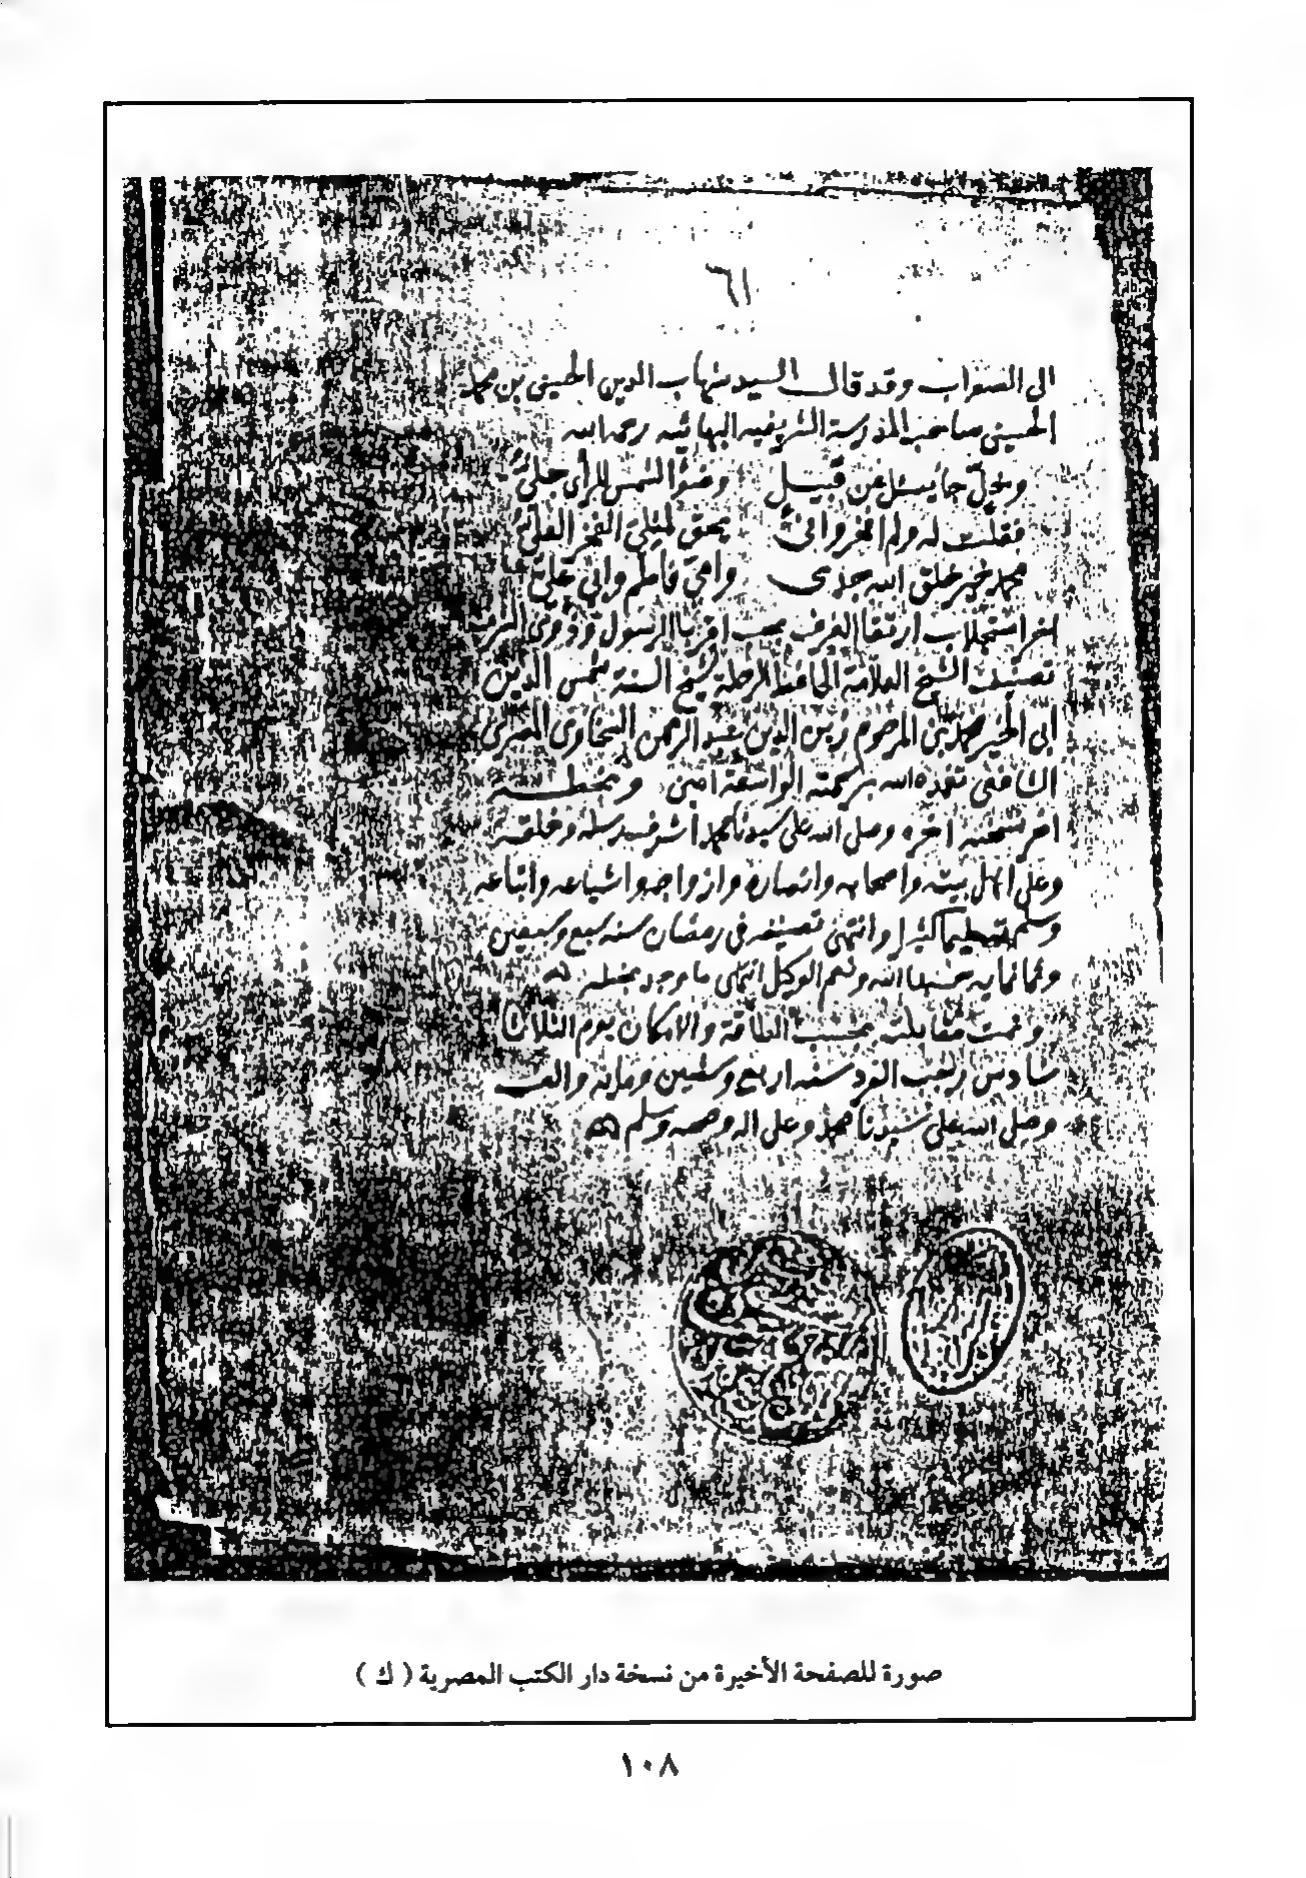 ٦١
الى الصواب وقد قال السيد شهاب الدين الحسيني بن محمد
الحسيني صاحب المدرسة الشريفيه البهائيه رحمه الله
وخل جا يسئل عن قبيل وضوء الشمس للرأى جلى
فقلت له ولم افخر وانى يحق لمثلى الفخر العلى
محمد خير خلق الله جدى وامى فاطم وابى على
اخر استجلاب ارتقا الغرف بحب اقربا الرسول وذوى الشرف
تصنيف الشيخ العلامة الحافظ الرحلة شيخ السنة شمس الدين
ابى الخير محمد بن المرحوم زين الدين عبد الرحمن السخاوى المصرى
الشافعى تغمده الله برحمته الواسعة امين وبخطه
اخر نسخه وصلى الله على سيدنا محمد اشرف رسله وخلقه
وعلى اهل بيته واصحابه وانصاره وازواجه واشياعه واتباعه
وسلم تسليما كثيرا وانتهى تصنيفه فى رمضان سنه سبع وسبعين
وثمانمايه حسبنا الله ونعم الوكيل انتهى ما وجد بخطه
وتمت مقابلته بحسب الطاقة والامكان يوم الثلاث
سادس رجب الفرد سنه اربع وستين ومايه والف
وصلى الله على سيدنا محمد وعلى اله وصحبه وسلم
صورة للصفحة الأخيرة من نسخة دار الكتب المصرية ( ك )
١٠٨